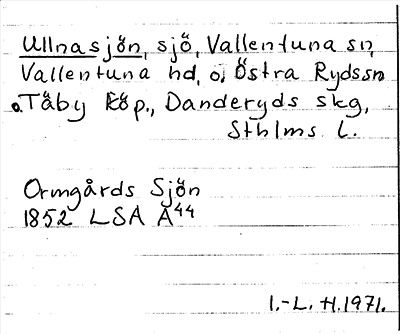 Ullnasjön, sjö, Vallentuna sn,
Vallentuna hd, o, Östra Rydssn
o. Täby köp., Danderyds skg,
Sthlms l.
Ormgårds Sjön
1852 LSA A44
I.-L. H. 1971.